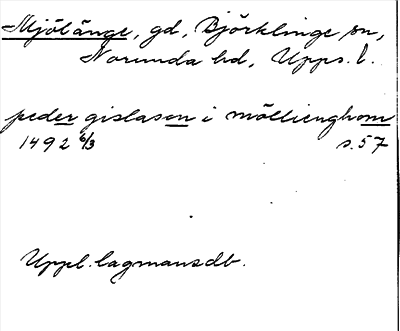 Mjölänge, gd, Björklinge sn,
Norunda hd, Upps. l.
peder gislason i möllienghom
1492 6/3 s. 57
Uppl. lagmansdb.